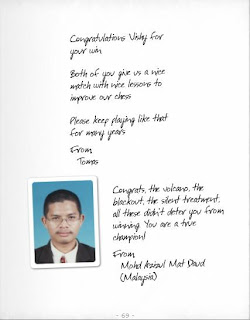 Congratulations Vishy for
your win
Both of you give us a nice
match with nice lessons to
improve our chess
Please keep playing like that
for many years
From
Tomas
Congrats, the volcano, the
blackout, the silent treatment,
all these didn't deter you from
winning. You are a true
champion!
From
Mohd Azizul Mat Daud
(Malaysia)
- 69 -